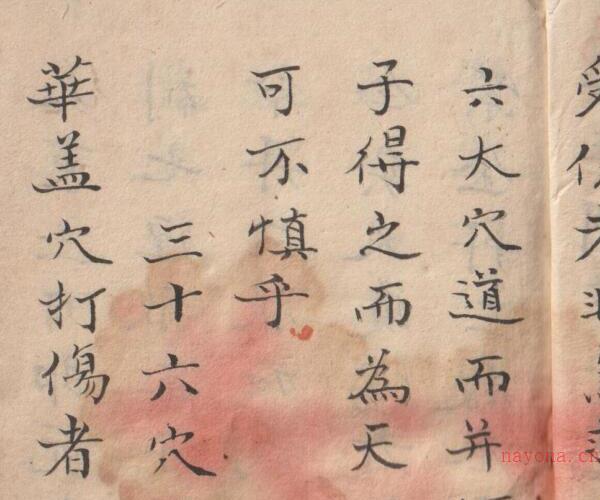 六大穴道而并
子得之而為天
可不慎乎
三十六穴
華盖穴打傷者
nayona.cn